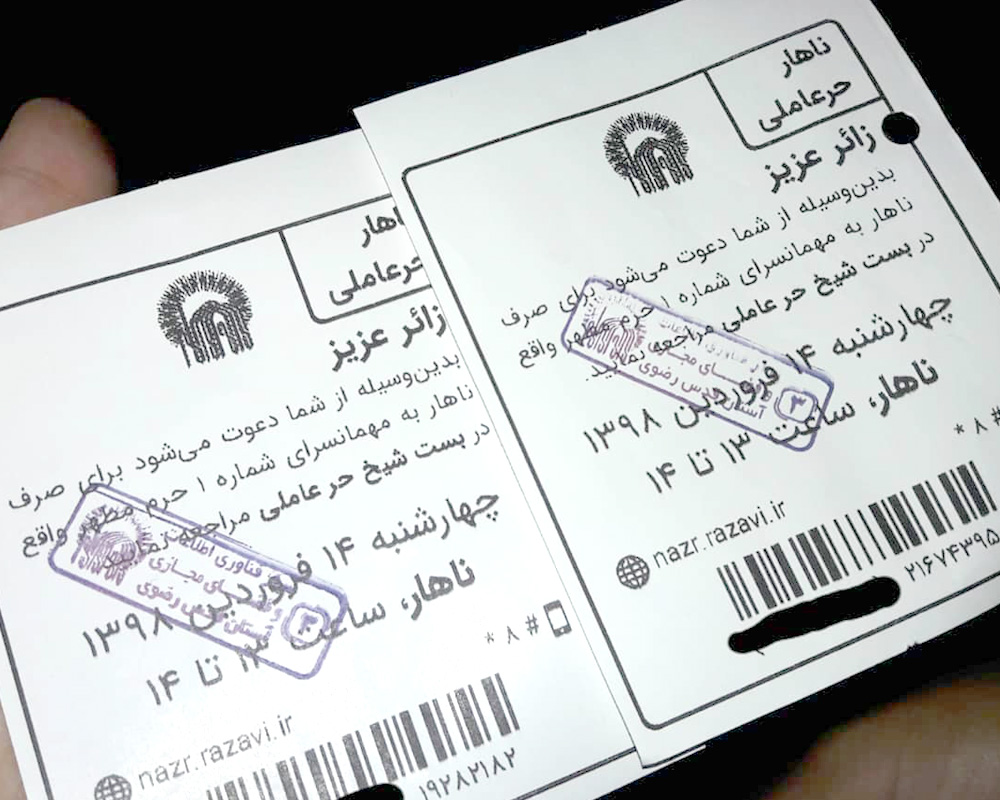 ناهار
حرعاملی
زائر عزیز
بدین‌وسیله از شما دعوت می‌شود برای صرف
ناهار به مهمانسرای شماره ۱ حرم مطهر واقع
در بست شیخ حر عاملی مراجعه نمایید.
چهارشنبه ۱۴ فروردین ۱۳۹۸
ناهار، ساعت ۱۳ تا ۱۴
* ۸ #
nazr.razavi.ir
۲۱۶۷۴۳۹۵
فناوری اطلاعات
و فضای مجازی
آستان قدس رضوی
۳
ناهار
حرعاملی
زائر عزیز
بدین‌وسیله از شما دعوت می‌شود برای صرف
ناهار به مهمانسرای شماره ۱ حرم مطهر واقع
در بست شیخ حر عاملی مراجعه نمایید
چهارشنبه ۱۴ فروردین ۱۳۹۸
ناهار، ساعت ۱۳ تا ۱۴
* ۸ #
nazr.razavi.ir
۱۹۲۸۲۱۸۲
فناوری اطلاعات
و فضای مجازی
آستان قدس رضوی